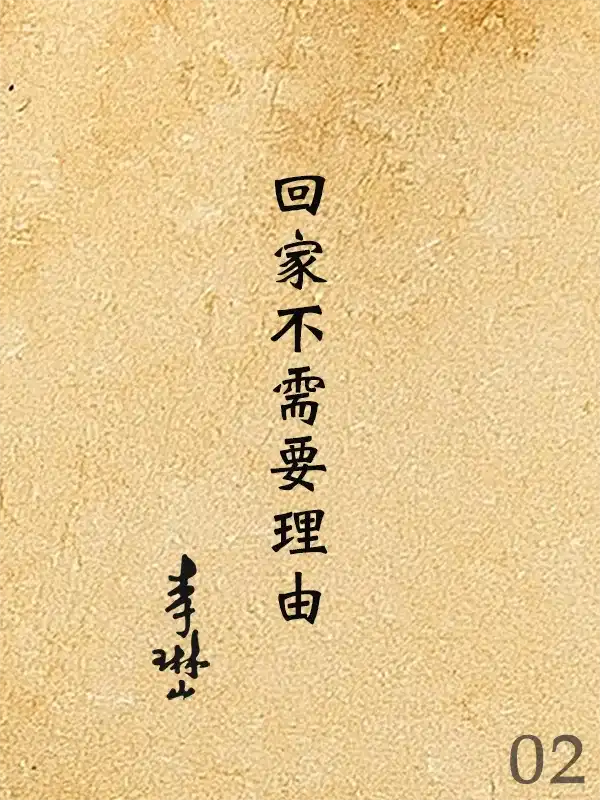 回家不需要理由
李琳山
02